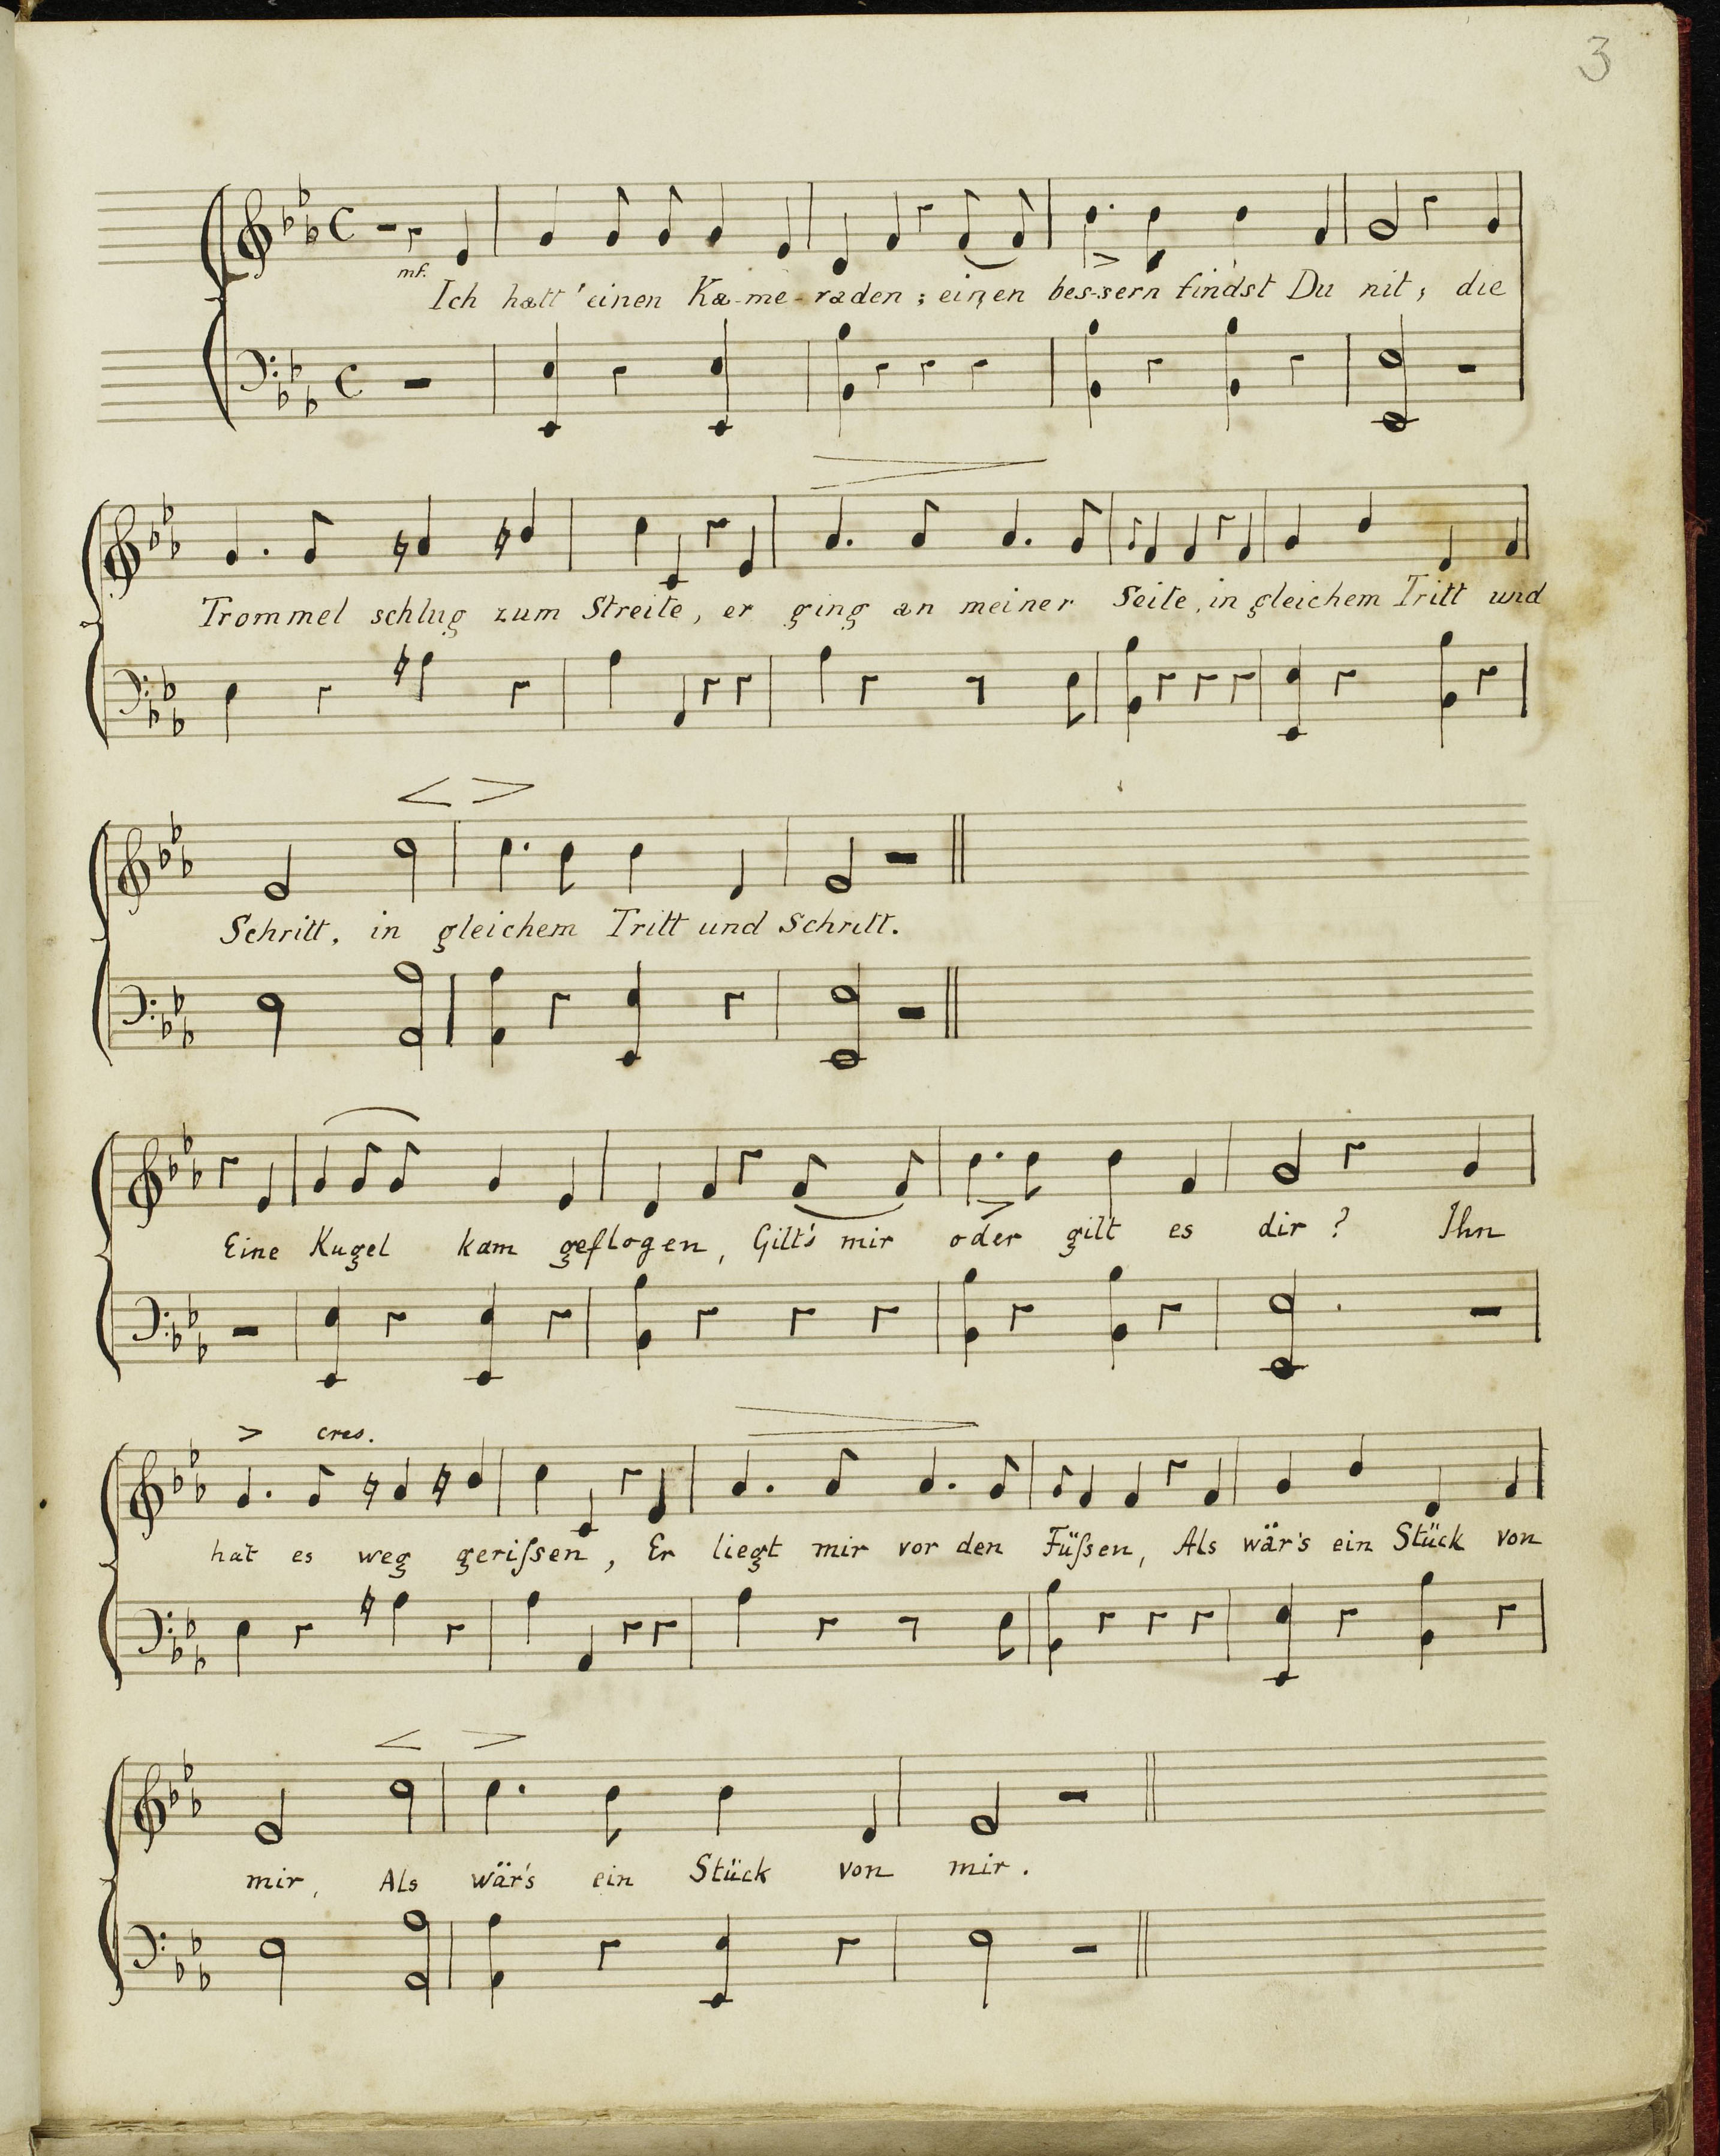 3
mf.
Ich hatt' einen Ka-me-raden; einen bes-sern findst Du nit; die
Trommel schlug zum Streite, er ging an meiner Seite, in gleichem Tritt und
Schritt, in gleichem Tritt und Schritt.
Eine Kugel kam geflogen, Gilt's mir oder gilt es dir? Ihn
cres.
hat es weg geriſsen, Er liegt mir vor den Füſsen, Als wär's ein Stück von
mir, Als wär's ein Stück von mir.